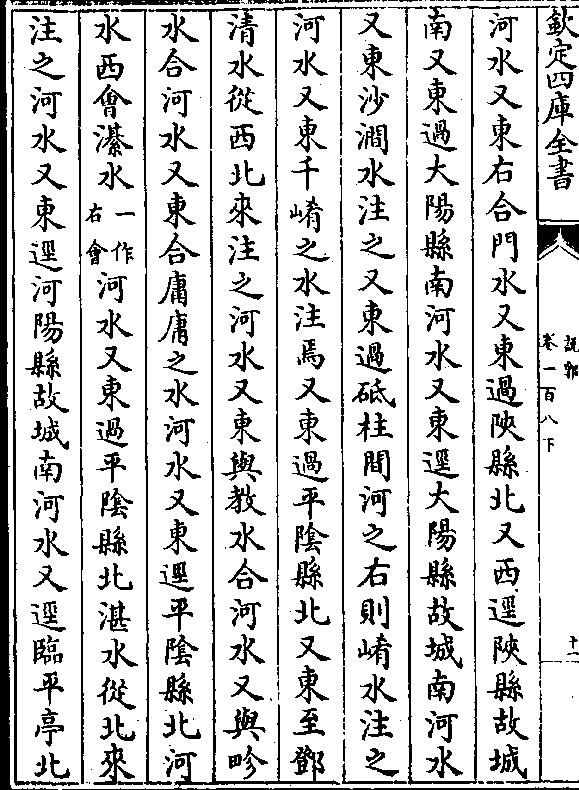 欽定四庫全書
說郛
卷一百八下
十一
河水又東右合門水又東過陜縣北又西逕陜縣故城
南又東過大陽縣南河水又東逕大陽縣故城南河水
又東沙澗水注之又東過砥柱間河之右則崤水注之
河水又東千崤之水注焉又東過平隂縣北又東至鄧
清水從西北來注之河水又東與教水合河水又與畛
水合河水又東合庸庸之水河水又東逕平隂縣北河
水西會濝水一作右會河水又東過平隂縣北湛水從北來
注之河水又東逕河陽縣故城南河水又逕臨平亭北